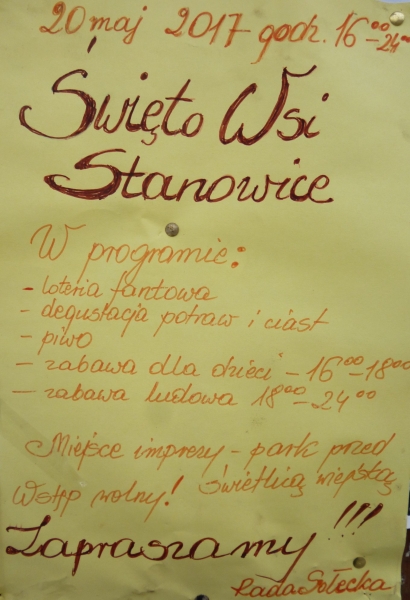 20 maj 2017 godz. 16⁰⁰-24⁰⁰
Święto Wsi
Stanowice
W programie:
- loteria fantowa
- degustacja potraw i ciast
- piwo
- zabawa dla dzieci - 16⁰⁰-18⁰⁰
- zabawa ludowa 18⁰⁰-24⁰⁰
Miejsce imprezy - park przed
świetlicą wiejską
Wstęp wolny!
Zapraszamy!!!
Rada Sołecka